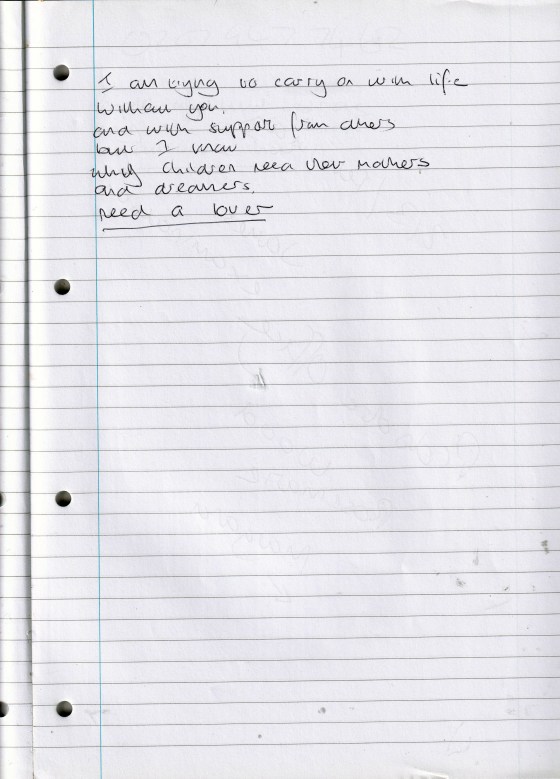 I am trying to carry on with life
without you.
and with support from others
but I know
why children need their mothers
and dreamers.
need a lover